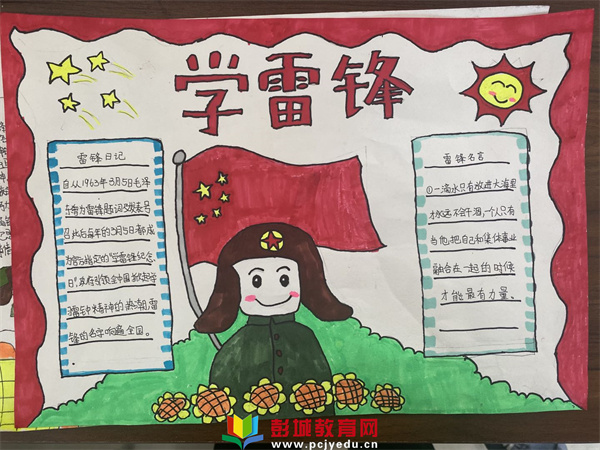 学雷锋
雷锋日记
自从1963年3月5日毛泽
东为雷锋题词发表号
召此后每年的3月5日都成
为
指定的"学雷锋纪念
日",
全中国掀起学
精神的热潮,雷
锋的名字响遍全国。
雷锋名言
①一滴水只有放进大海里
才永远不会干涸,一个人只有
当他把自己和集体事业
融合在一起的时候
才能最有力量。
彭城教育网
www.pcjyedu.cn